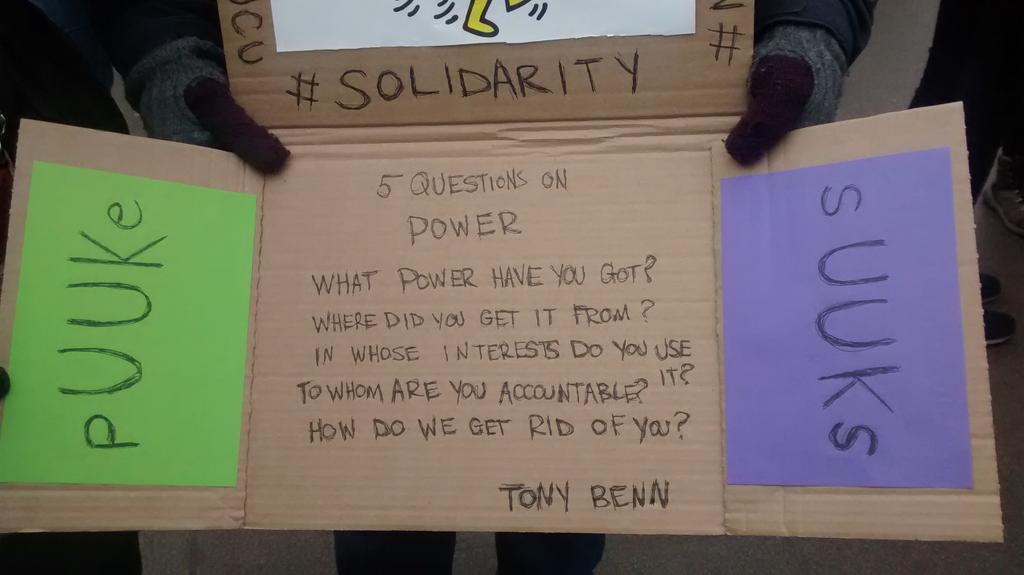 UCU
#
#SOLIDARITY
PUUKe
5 QUESTIONS ON
POWER
WHAT POWER HAVE YOU GOT?
WHERE DID YOU GET IT FROM?
IN WHOSE INTERESTS DO YOU USE
IT?
TO WHOM ARE YOU ACCOUNTABLE?
HOW DO WE GET RID OF YOU?
TONY BENN
SUUKS